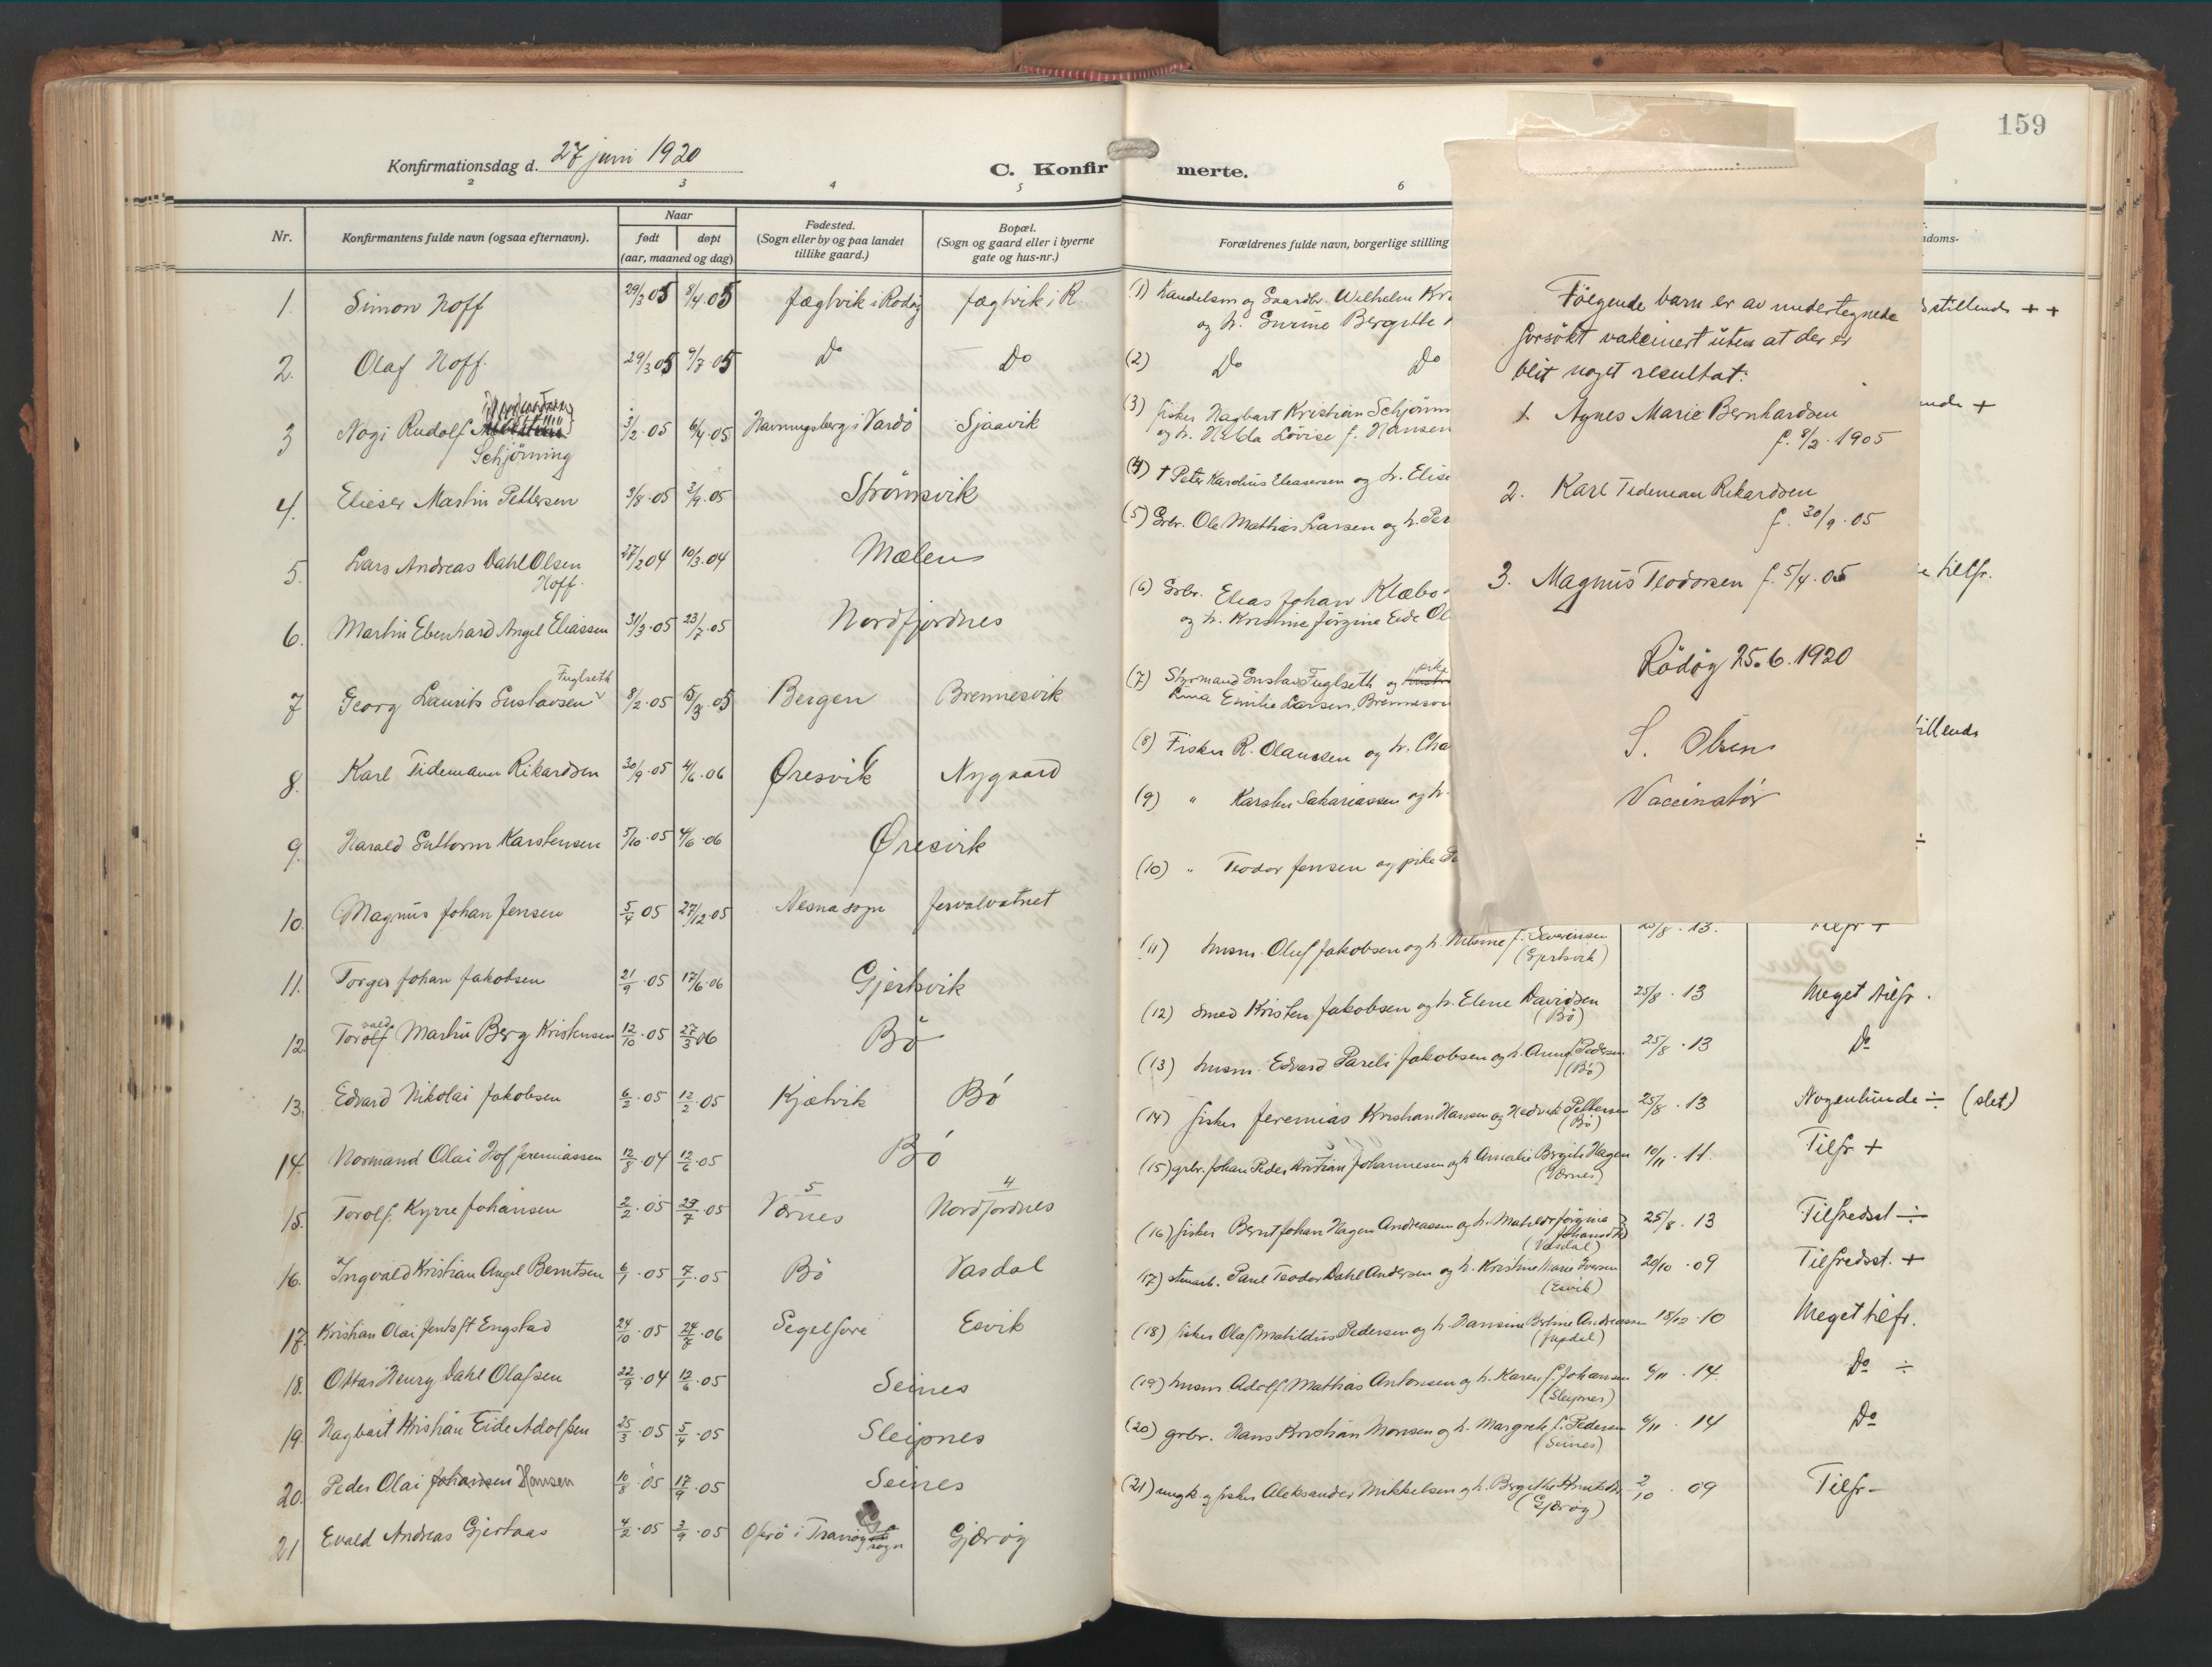 159
Konfirmationsdag d. 27 juni 1920
C. Konfir merte.
2 3 4 5 6
Nr. Konfirmantens fulde navn (ogsaa efternavn). Naar født døpt (aar, maaned og dag) Fødested. (Sogn eller by og paa landet tillike gaard.) Bopæl. (Sogn og gaard eller i byerne gate og hus-nr.)
Forældrenes fulde navn, borgerlige stilling
doms-
1. Simon Hoff 29/3 05 8/4.05 Jægtvik i Rødøy Jægtvik i R.
2. Olaf Hoff. 29/3 05 9/7 05 Do Do
3 Nogi Rudolf Schjønning 3/2.05 6/4.05 Havningsberg i Vardö Sjaavik
4. Elieser Martin Pettersen 3/8.05 3/9.05 Strömsvik
5. Lars Andreas Dahl Olsen Hoff. 27/2 04 10/3.04 Mælen
6. Martin Ebenhard Angel Eliassen 31/3.05 23/7.05 Nordfjordnes
7 Georg Laurits Gustavsen Fuglseth 8/2.05 15/3.05 Bergen Brennesvik
8. Karl Tidemann Rikardsen 30/9.05 4/6.06 Øresvik Nygaard
9. Harald Guttorm Karstensen 5/10.05 4/6.06 Øresvik
10. Magnus Johan Jensen 5/4 05 27/12.05 Nesna sogn
11. Torger Johan Jakobsen 21/9.05 17/6.06 Gjersvik
12. Torolf vald Martin Berg Kristensen 12/10.05 27/3 06 Bö
13. Edvard Nikolai Jakobsen 6/2.05 12/2.05 Kjælvik Bö
14. Normand Olai Hof Jeremiassen 12/8.04 12/6.05 Bö
15. Torolf Kyrre Johansen 2/2.05 29/7.05 5 Værnes 4 Nordfjordnes
16. Ingvald Kristian Angel Berntsen 6/1.05 7/1.05 Bö Vasdal
17. Kristian Olai Jentoft Engstad 24/10.05 24/6.06 Segelfore Esvik
18. Ottar Henry Dahl Olafsen 22/9.04 12/6.05 Seines
19. Hagbart Kristian Eide Adolfsen 25/3.05 5/4.05 Sleipnes
20. Peder Olai Johansen Hansen 10/8.05 17/9.05 Seines
21 Evald Andreas Gjertaas 4/2.05 3/9.05 i Tranøy sogn Gjærøy
(1) Handelsm og Gaardbr. Wilhelm Kr
og h. Surine Bergitte
(2) Do Do
(3) fisker Hagbart Kristian Schjønn
og h. Hilda Lovise f. Hansen
(4) † Peter Karolius Eleasersen og h. Elise
(5) Grbr. Ole Mathias Larsen og h. Per
(6) Grbr. Elias Johan Klæbo
og h. Kristine Jørgine Eide Ol
(7) Styrmand Gustav Fuglseth og pike
Lina Emilie Larsen, Brennesvi
(8) Fisker R. Olaussen og h. Cha
(9) " Karsten Sakariassen og h.
(10) " Teodor Jensen og pike
Følgende barn er av undertegnede
forsøkt vakcinert uten at der er
blit noget resultat:
1 Agnes Marie Bernhardsen
f. 8/2. 1905
2. Karl Tedeman Rikardsen
f. 30/9.05
3. Magnus Teodorsen f. 5/4.05
Rödöy 25.6.1920
S. Olsen
Vaccinatör
stillende + +
ende +
tilfr.
illende
÷
(11) husm. Oluf Jakobsen og h. Nelsine f. Severinsen (Gjersvik) 25/8.13. Tilfr +
(12) Smed Kristen Jakobsen og h. Elene Davidsen (Bö) 25/8.13 Meget tilfr.
(13) husm. Edvard Pareli Jakobsen og h. Anna Pedersen (Bö) 25/8.13 Do
(14) fisker Jeremias Kristian Hansen og Hedvik Pettersen (Bö) 25/8.13 Nogenlunde ÷ (slet)
(15) grbr. Johan Peder Kristian Johannesen og h Amalie Birgitte Hagen (Værnes) 10/11.11. Tilfr +
(16) fisker Bernt Johan Hagen Andreassen og h. Mathilde Jörgine (Vasdal) 25/8.13 Tilfredsst ÷
(17) stenarb. Paul Teodor Dahl Andersen og h. Kristine Marie Iversen (Esvik) 20/10.09 Tilfredsst. +
(18) fisker Olaf Mathildius Pedersen og h. Hansine Andreassen 18/12.10 Meget tilfr.
(19) husm Adolf Mathias Antonsen og h. Karen f. Johansen (Sleipnes) 6/11.14 Do ÷
(20) grbr. Hans Kristian Monsen og h. Margrete f. Pedersen (Seines) 6/11.14 Do
(21) ungk og fisker Aleksander Mikkelsen og h. Bergitte (Gjærøy) 2/10.09 Tilfr-